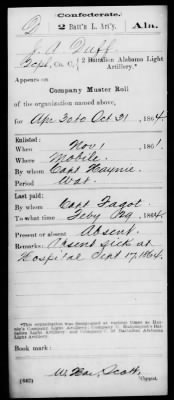 Confederate.
D 2 Batt'n L. Art'y. Ala.
J. A. Duff
Sergt, Co. C, 2 Battalion Alabama Light Artillery.*
Appears on
Company Muster Roll
of the organization named above,
for Apr 30 to Oct 31, 1864.
Enlisted:
When Nov 1, 1861.
Where Mobile.
By whom Capt Haynie
Period War.
Last paid:
By whom Capt Fagot
To what time Feby 29, 1864.
Present or absent Absent.
Remarks: Absent sick at
Hospital Sept 17, 1864.
*This organization was designated at various times as
Company Light Artillery; Company
Light Artillery and Company of Battalion Alabama
Light Artillery.
Book mark:
Scott
(642) Copyist.